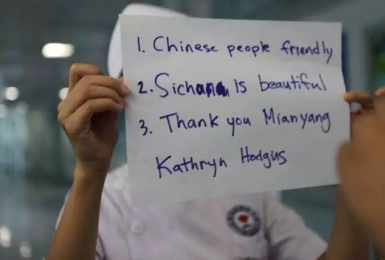 1. Chinese people friendly
2. Sichana is beautiful
3. Thank you Mianyang
Kathryn Hodgus